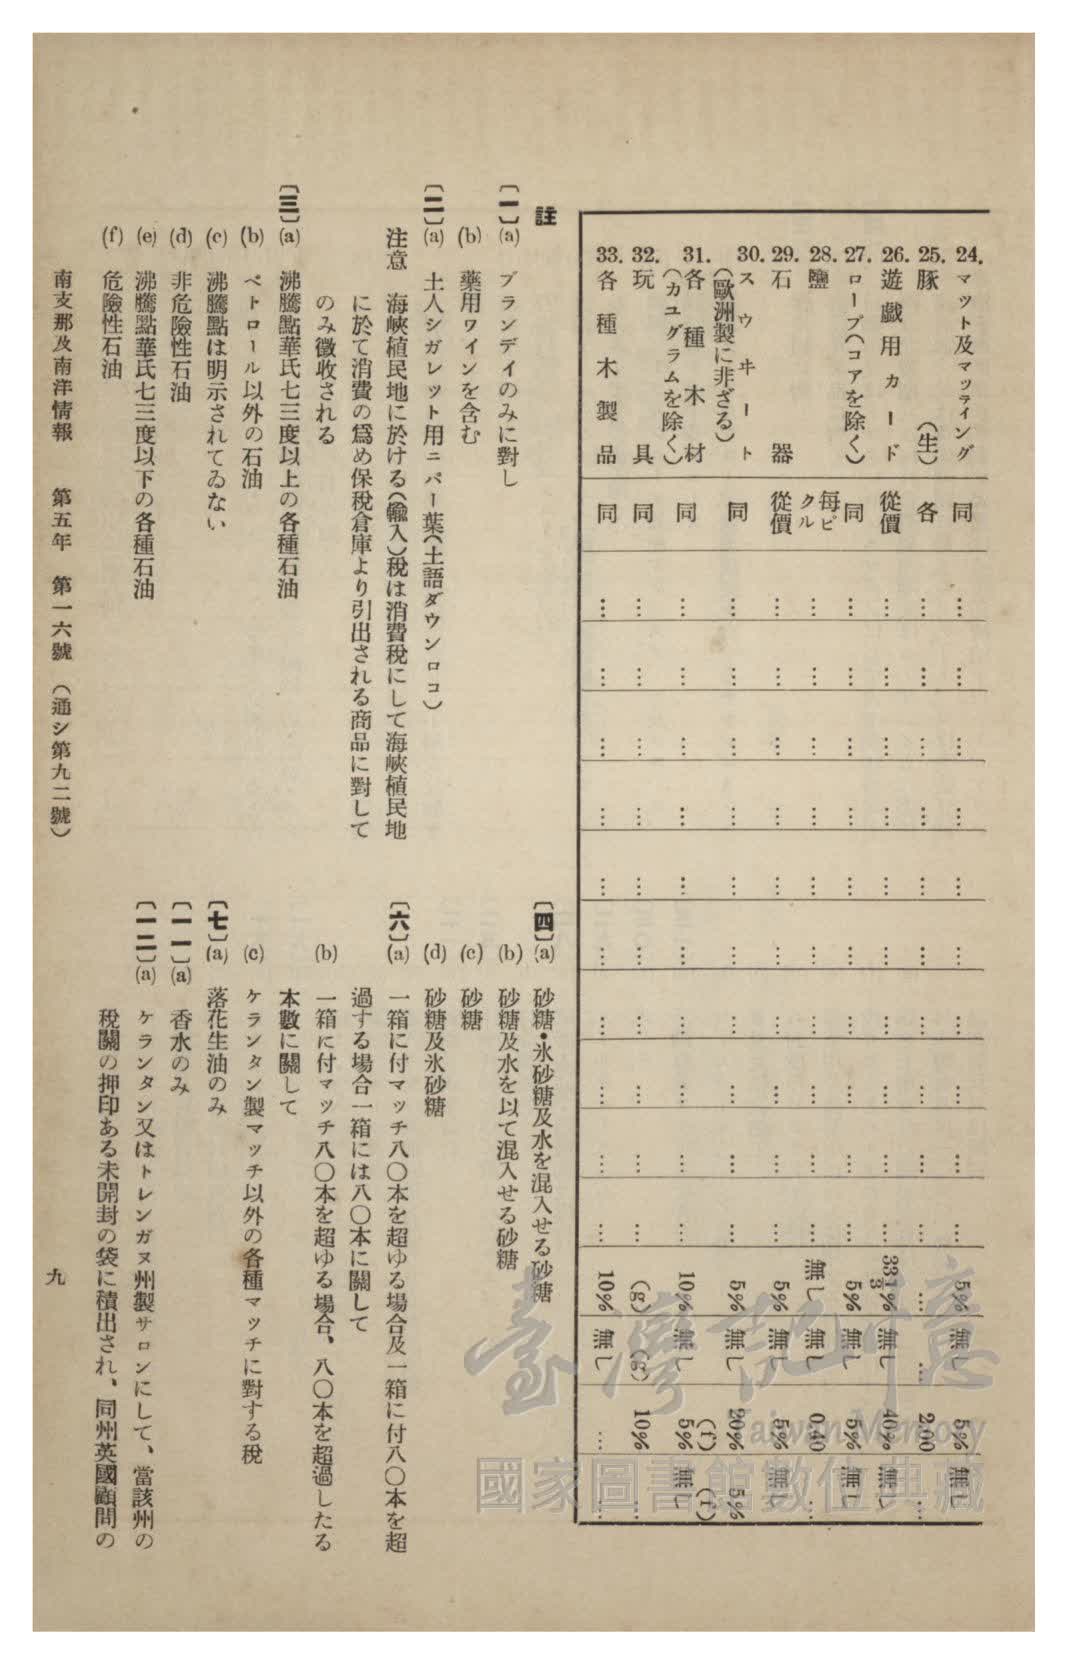 24. マット及マッティング 同 … … … … … … … … … … 5% 無し 5% 無し
25. 豚(生) 各 … … … … … … … … … … … … 2.00 …
26. 遊戯用カード 從價 … … … … … … … … … … 33⅓% 無し 40% 無し
27. ロープ(コアを除く) 同 … … … … … … … … … … 5% 無し 5% 無し
28. 鹽 每ピクル … … … … … … … … … … 無し 無し 0.40 …
29. 石器 從價 … … … … … … … … … … 5% 無し 5% 無し
30. スウヰート(歐洲製に非ざる) 同 … … … … … … … … … … 5% 無し 20% 5%
31. 各種木材(カユグラムを除く) 同 … … … … … … … … … … 10% 無し (f) 5% (f) 無し
32. 玩具 同 … … … … … … … … … … (g) (g) 10% …
33. 各種木製品 同 … … … … … … … … … … 10% 無し … …
註
〔一〕(a) ブランデイのみに對し
(b) 藥用ワインを含む
〔二〕(a) 土人シガレット用ニパー葉(土語ダウンロコ)
注意 海峽植民地に於ける(輸入)稅は消費稅にして海峽植民地
に於て消費の爲め保稅倉庫より引出される商品に對して
のみ徵收される
〔三〕(a) 沸騰點華氏七三度以上の各種石油
(b) ペトロール以外の石油
(c) 沸騰點は明示されてゐない
(d) 非危險性石油
(e) 沸騰點華氏七三度以下の各種石油
(f) 危險性石油
〔四〕(a) 砂糖・氷砂糖及水を混入せる砂糖
(b) 砂糖及水を以て混入せる砂糖
(c) 砂糖
(d) 砂糖及氷砂糖
〔六〕(a) 一箱に付マッチ八〇本を超ゆる場合及一箱に付八〇本を超
過する場合一箱には八〇本に關して
(b) 一箱に付マッチ八〇本を超ゆる場合、八〇本を超過したる
本數に關して
(c) ケランタン製マッチ以外の各種マッチに對する稅
〔七〕(a) 落花生油のみ
〔一一〕(a) 香水のみ
〔一二〕(a) ケランタン又はトレンガヌ州製サロンにして、當該州の
稅關の押印ある未開封の袋に積出され、同州英國顧問の
南支那及南洋情報 第五年 第一六號 (通シ第九二號)
九
臺灣記憶
Taiwan Memory
國家圖書館數位典藏